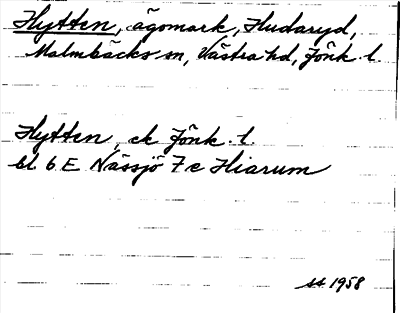 Hytten, ägomark, Hudaryd,
Malmbäcks sn, Västra hd, Jönk. l.
Hytten, ek Jönk. l.
bl. 6 E Nässjö 7 c Hiarum
1958